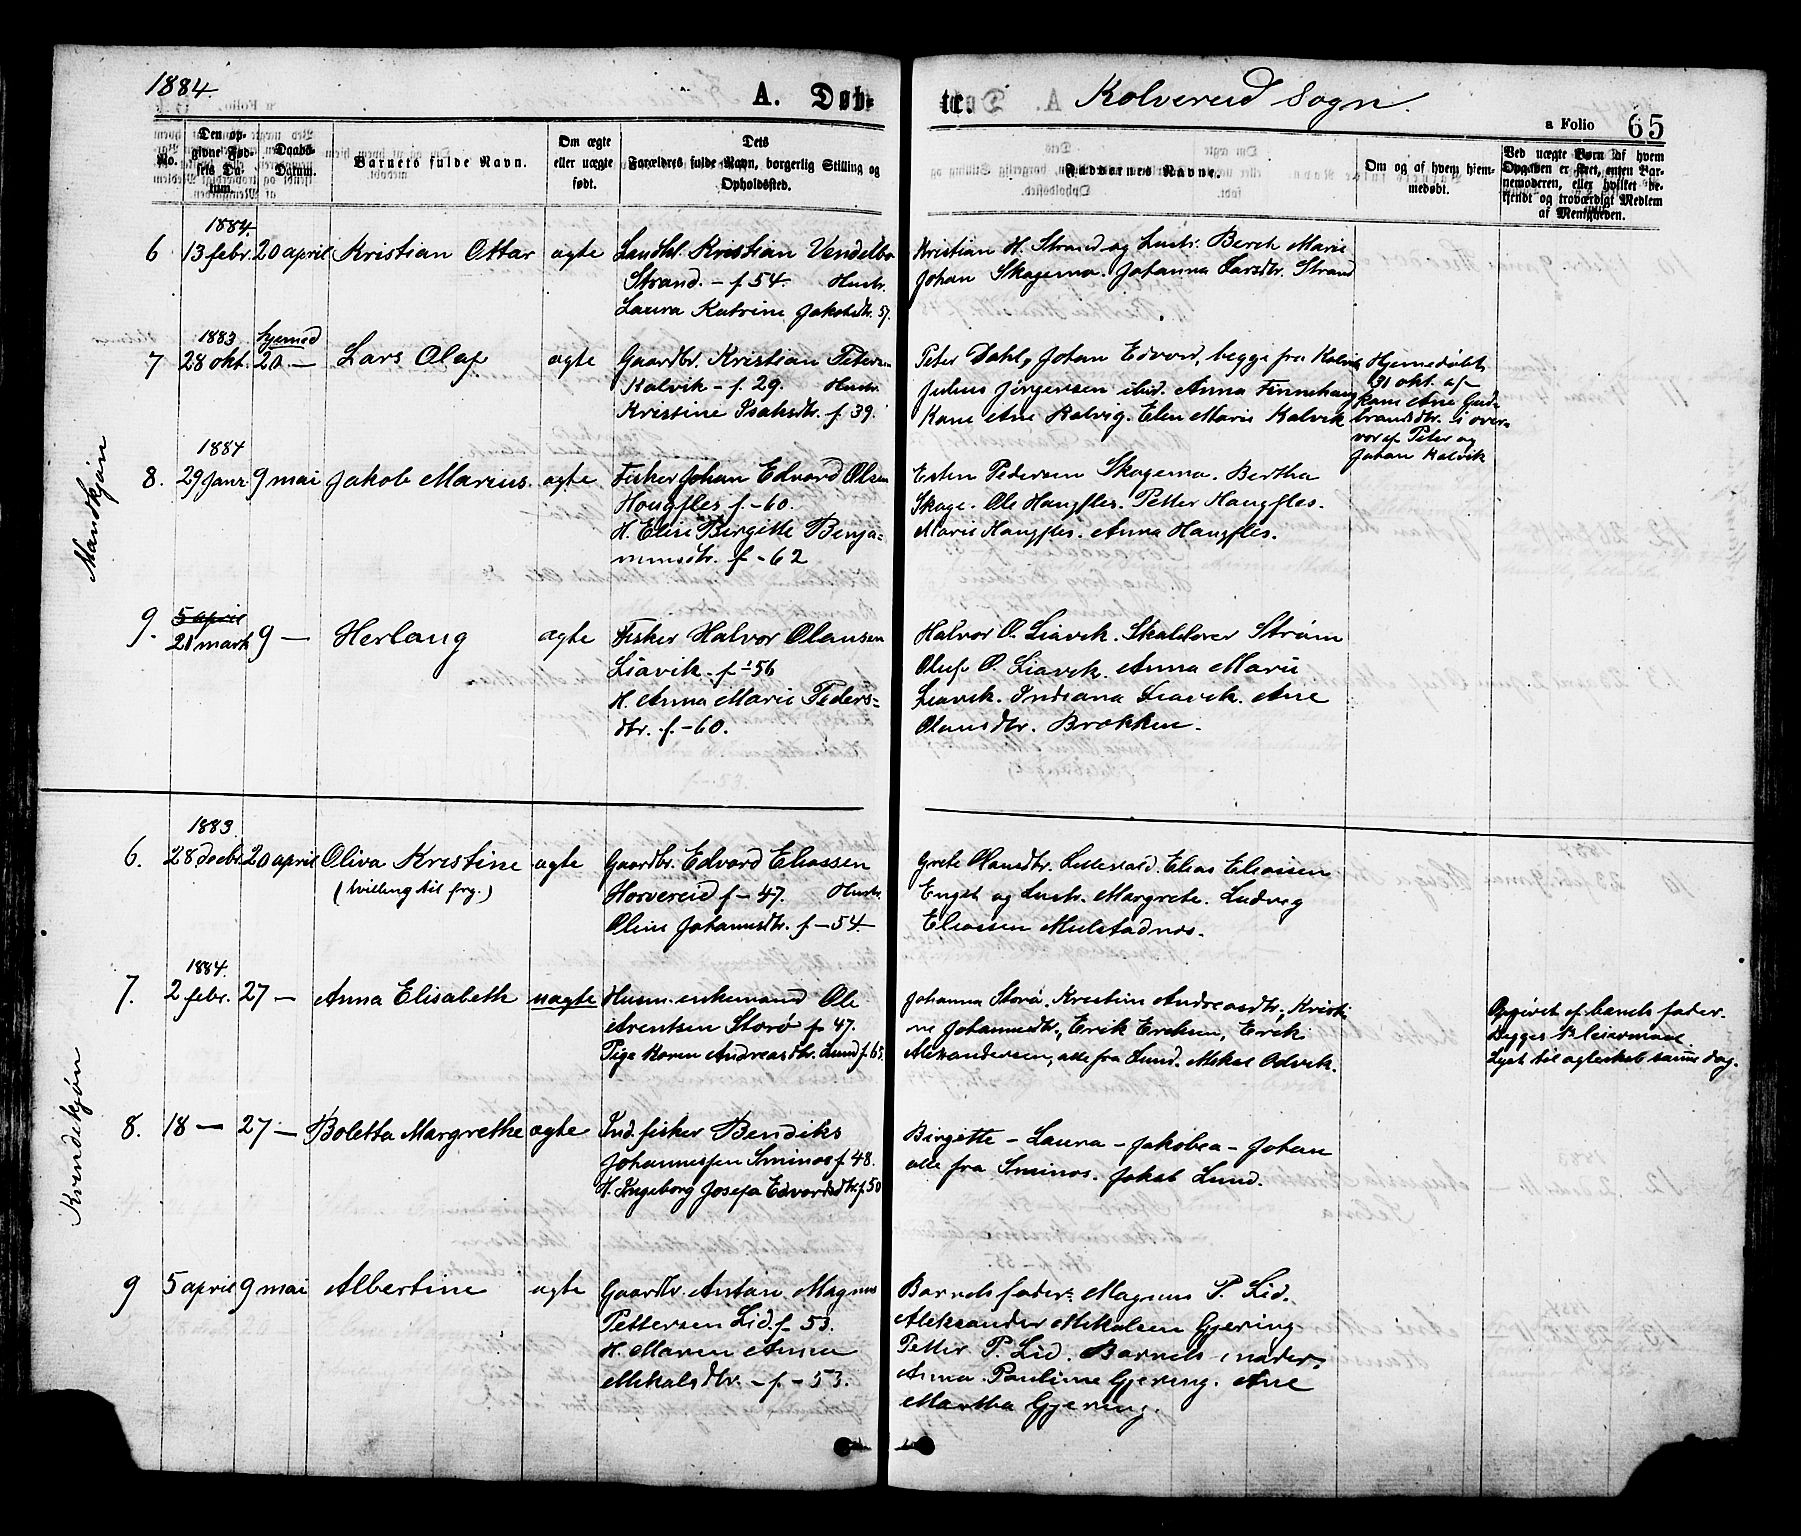 1884. A. Døb-
te. Kolvereid Sogn.
a Folio 65
No.
Den op-
givne Fød-
sels Da-
tum.
Daabs-
Datum.
Barnets fulde Navn.
Om ægte
eller uægte
født.
Dets
Forældres fulde Navn, borgerlig Stilling og
Opholdssted.
Faddernes Navne.
Om og af hvem hjem-
medøbt.
Ved uægte Børn af hvem
Opgaven er skeet, enten Bar-
nemoderen, eller hvilket be-
kjendt og troværdigt Medlem
af Menigheden.
Mandkjøn
1884.
6 13 febr. 20 april Kristian Ottar ægte Landhl. Kristian Vendelbo
Strand. - f. 54. Hustr.
Laura Katrine Jakobsdtr. 57.
Kristian H. Strand og hustr. Berch Marie
Johan Skagemo. Johanna Larsdtr. Strand
1883 hjemmed
7 28 okt. 20 - Lars Olaf ægte Gaardbr. Kristian Petersen
Kalvik - f. 29. Hustr.
Kristine Isaksdtr. f. 39.
Peter Dahl, Johan Edvard, begge fra Kalvik
Julius Jørgensen ibid. Anna Finnehaug
Kone Ane Kalvig. Elen Marie Kalvik
Hjemmedøbt
31 okt. af
kone Ane Gude
brandsdtr. i over-
vær af Peter og
Johan Kalvik
1884
8. 29 janr. 9 mai Jakob Marius. ægte Fisker Johan Edvard Olsen
Hougfles f. -60.
H. Elise Birgitte Benja-
minsdtr. f. -62
Esten Pedersen Skagemo. Bertha
Skage. Ole Haugfles. Petter Haugfles.
Marie Haugfles. Anna Haugfles.
9. 5 april
21 marts 9 - Herlaug ægte Fisker Halvor Olausen
Liavik. f. -56
H. Anna Marie Peders-
dtr. f. -60.
Halvor O. Liavik. Skoldover Strøm
Oluf O. Liavik. Anna Marie
Liavik. Indiana Liavik. Ane
Olausdtr. Brækken.
Kvindekjøn
1883.
6. 28 decbr. 20 april Oliva Kristine ægte Gaardbr. Edvard Eliassen
(tvilling til frg.)
Horvereid f. - 47. Hustr.
Oline Johannesdtr. f. - 54
Grete Olausdtr. Lillevold. Elias Eliassen
Engst og hustr. Margrete. Ludvig
Eliassen Mulstadnes.
1884.
7. 2 febr. 27 - Anna Elisabeth uægte Husm. enkemand Ole
Arentsen Storø f. 47.
Pige Karen Andreasdtr. Lund f. 65.
Johanna Storø. Kristine Andreasdtr. Kristi-
ne Johannesdtr., Erik Eriksen, Erik
Alexandersen, alle fra Lund. Mikal Odvik.
Opgivet af barnets fader.
Begges 1. leiermaal.
Lyst til ægteskab samme dag.
8. 18 - 27 - Boletta Margrethe ægte Ind. fisker Bendiks
Johannessen Sminos f. 48.
H. Ingeborg Josefa Edvardsdtr. f. 50
Birgitte - Laura - Jakobea - Johan
alle fra Sminos. Jakob Lund.
9 5 april 9 mai Albertine ægte Gaardbr. Anton Magnus
Pettersen Lid. f. 53.
H. Maren Anna
Mikalsdtr. - f. - 53.
Barnets fader: Magnus P. Lid.
Aleksander Mikalsen Gjering
Petter P. Lid. Barnets moder.
Anna Pauline Gjering. Ane
Martha Gjering.